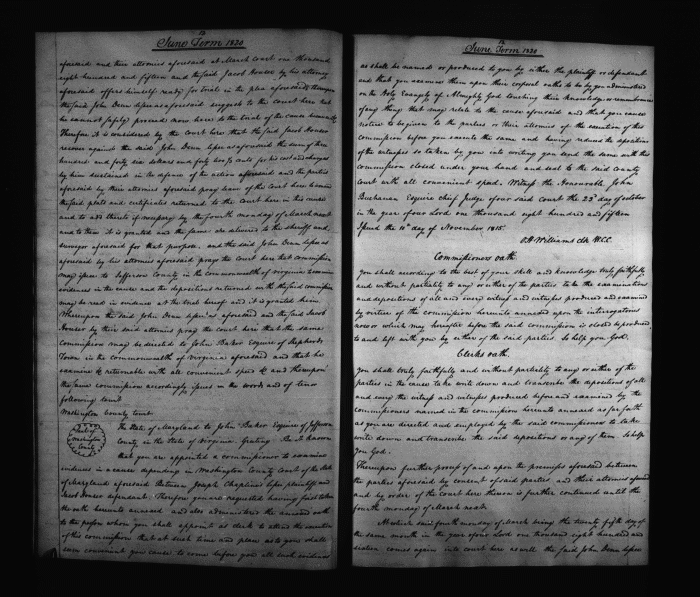 June Term 1820
aforesaid and their attornies aforesaid at March court one thousand
eight hundred and fifteen and the said Jacob Houser by his attorney
aforesaid offers himself ready for trial in the plea aforesaid thereupon
the said John Dean lessee as aforesaid suggests to the court here that
he cannot safely proceed now here to the trial of the cause
Therefore it is considered by the court here that the said Jacob Houser
recover against the said John Dean lessee as aforesaid the sum of three
hundred and forty six dollars and forty cents for his cost and charges
by him sustained in the defence of the action aforesaid and the parties
aforesaid by their attornies aforesaid pray leave of the Court here
the said plats and certificates returned to the Court here in this cause
and to add thereto if necessary by the fourth monday of March next
and to them it is granted and the same are delivered to the sheriff and
surveyor aforesaid for that purpose, and the said John Dean lessee as
aforesaid by his attornies aforesaid prays the Court here that commission
may issue to Jefferson County in the commonwealth of virginia to examine
evidences in the cause and the depositions returned with the said commission
may be read in evidence at the trial hereof and it is granted him
Whereupon the said John Dean lessee as aforesaid and the said Jacob
Houser by their said attornies pray the court here that the same
commission may be directed to John Baker Esquire of Shepherds
Town in the commonwealth of virginia aforesaid and that he
examine &c returnable with all convenient speed &c and thereupon
the same commission accordingly issues in the words and of tenor
following to wit
Washington County to wit
Seal of Washington County
The State of Maryland to John Baker Esquire of Jefferson
County in the State of Virginia Greeting. Be it known
that you are appointed a commissioner to examine
evidences in a cause depending in Washington County Court of the State
of Maryland aforesaid Between Joseph Chaplines lessee plaintiff and
Jacob Houser defendant. Therefore you are requested having first taken
the oath hereunto annexed and also administered the annexed oath
to the person whom you shall appoint as clerk to attend the execution
of this commission that at such time and place as to you shall
seem convenient you cause to come before you all such evidences
June Term 1820
as shall be named or produced to you by either the plaintiff or defendant
and that you examine them upon their corporal oaths to be by you administered
on the Holy Evangely of Almighty God touching their knowledge or remembrance
of any thing that may relate to the cause aforesaid and that you cause
notice to be given to the parties or their attornies of the execution of this
commission before you execute the same and having reduced the depositions
of the witnesses so taken by you into writing you send the same with this
commission closed under your hand and seal to the said County
Court with all convenient speed. Witness the Honourable John
Buchanan Esquire chief Judge of our said court the 23d day of october
in the year of our Lord one thousand eight hundred and fifteen
Issued the 10th day of November 1815.
O.H. Williams Clk W.C.C.
Commissioners oath
You shall according to the best of your skill and knowledge truly faithfully
and without partiality to any or either of the parties take the examinations
and depositions of all and every witness and witnesses produced and examined
by virtue of the commission hereunto annexed upon the interrogatories
now or which may hereafter before the said commission is closed be produced
to and left with you by either of the said parties. So help you God.
Clerks oath
You shall truly faithfully and without partiality to any or either of the
parties in the cause take write down and transcribe the depositions of all
and every the witness and witnesses produced before and examined by the
commissioners named in the commission hereunto annexed as far forth
as you are directed and employed by the said commissioners to take
write down and transcribe the said depositions or any of them So help
you God.
Thereupon further proof of and upon the premises aforesaid between
the parties aforesaid by consent of said parties and their attornies aforesaid
and by order of the court here thereon is further continued until the
fourth monday of March next.
At which said fourth monday of March being the twenty fifth day of
the same month in the year of our Lord one thousand eight hundred and
sixteen comes again into court here as well the said John Dean lessee